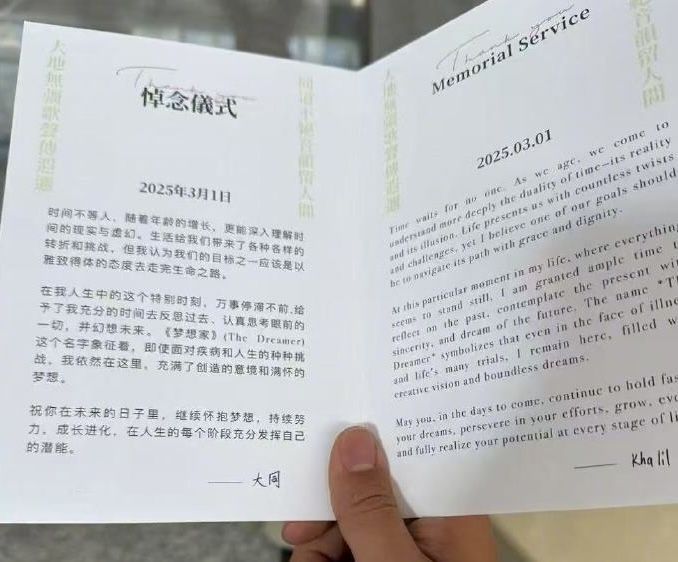 大地無聲歌聲傳迴邇
Thank you
悼念儀式
2025年3月1日
时间不等人、随着年龄的增长，更能深入理解时
间的现实与虚幻。生活给我们带来了各种各样的
转折和挑战，但我认为我们的目标之一应该是以
雅致得体的态度去走完生命之路。
在我人生中的这个特别时刻，万事停滞不前,给
予了我充分的时间去反思过去、认真思考眼前的
一切，并幻想未来。《梦想家》(The Dreamer)
这个名字象征着，即使面对疾病和人生的种种挑
战，我依然在这里，充满了创造的意境和满怀的
梦想。
祝你在未来的日子里，继续怀抱梦想，持续努
力，成长进化，在人生的每个阶段充分发挥自己
的潜能。
—— 大同
音韻留人間
Thank you
Memorial Service
音韻留人間
2025.03.01
Time waits for no one. As we age, we come to
understand more deeply the duality of time—its reality
and its illusion. Life presents us with countless twists
and challenges, yet I believe one of our goals should
be to navigate its path with grace and dignity.
At this particular moment in my life, where everything
seems to stand still, I am granted ample time t
reflect on the past, contemplate the present wit
sincerity, and dream of the future. The name *Th
Dreamer* symbolizes that even in the face of illne
and life's many trials, I remain here, filled w
creative vision and boundless dreams.
May you, in the days to come, continue to hold fas
your dreams, persevere in your efforts, grow, evo
and fully realize your potential at every stage of li
—— Khalil